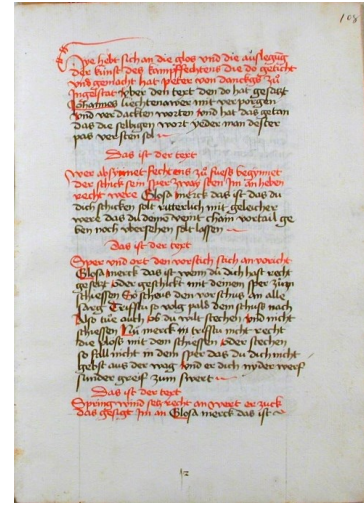 108
Hye hebt sich an die glos vnd die auslegūg
der kunst des kampffechtens die do geticht
vnd gemacht hat peter von danckgs zu
Ingelstat vber den text den do hat gesetzt
Johannes liechtenawer mit verporgen
vnd verdackten worten vnd hat das getan
das die selbigen wort yeder man dester
pas versten sol
Das ist der text
Wer absynnet fechtens zu fuess begynnet
der schick sein sper zway sten Im an heben
recht were Glosa merck das ist das du
dich schicken solt ritterlich mit gelecher
were das du deinē veint chain vortail ge
ben noch vbersehen solt lassen
Das ist der text
Sper vnd ort den vorstich stich an voricht
Glosa merck das ist wenn du dich hast recht
gesetzt oder geschickt mit deinem sper zum
schiessen So scheus den vorschus an alle
sarg Trifstu so volg pald dem schuss nach
Also tue auch ob du wilt stechen vnd nicht
schiessen Nu merck in trifstu nicht recht
die plöss mit dem schiessen oder stechen
so still nicht in dem sper das du dich nicht
gebst aus der wag vnd er dich nyder werf
sunder greif zum swert
Das ist der text
Spring wind secz recht an wert er zuck
das gesigt Im an Glosa merck das ist